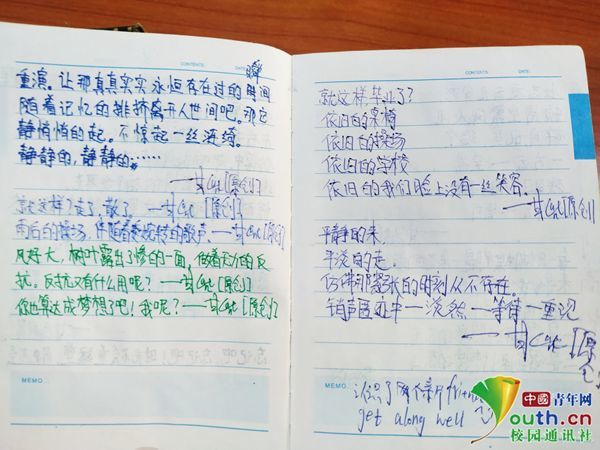 CONTENTS:
DATE:
瞬
重演。让那真真实实永恒存在过的时间
随着记忆的推挤离开人世间吧，那么
静悄悄的起。不惊起一丝涟漪。
静静的，静静的……
——甘 [原创]
就这样？走了，散了。——甘 [原创]
雨后的操场，伴随着
的歌声——甘 [原创]
风好大，树叶露出了惨白的一面，做着无力的反
抗。反抗又有什么用呢？——甘 [原创]
你也算达成梦想了吧！我呢？——甘 [原创]
MEMO
CONTENTS:
DATE:
就这样毕业了？
依旧的
依旧的操场
依旧的学校
依旧的我们脸上没有一丝笑容。
——甘 [原创]
平静的来
平淡的走
仿佛
的时刻从不存在。
销声匿迹中一
一等待一重现
——甘 [原创]
MEMO
认识了两个新friend
get along well
中國青年网
Youth.cn
校园通讯社